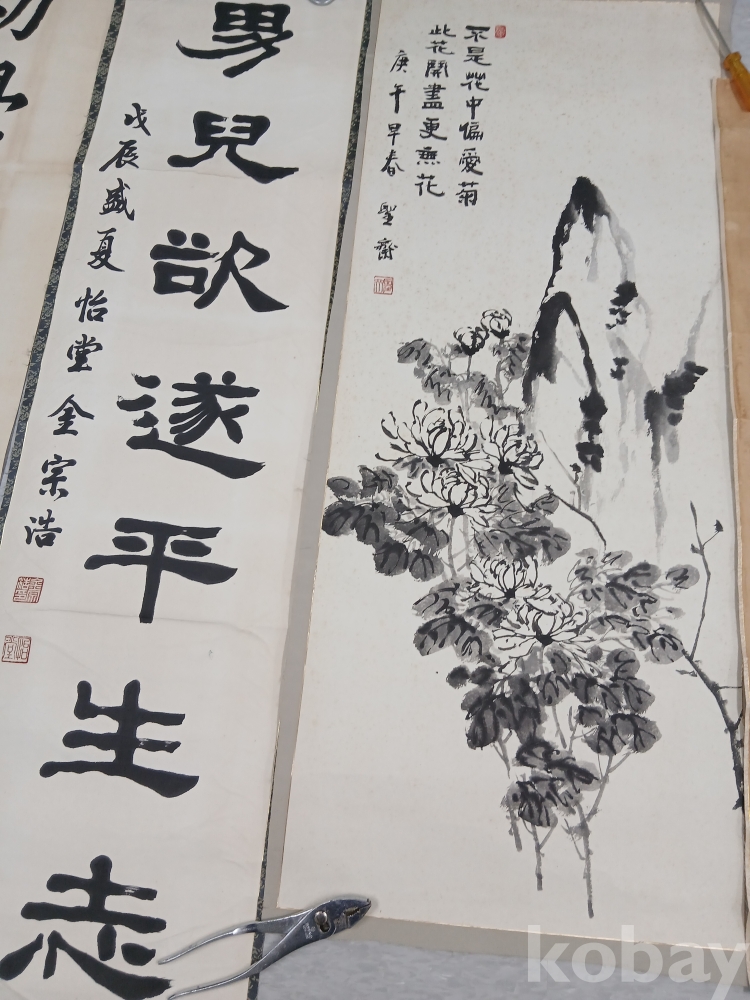 不是花中偏愛菊
此花開盡更無花
庚午早春 齋
男兒欲遂平生志
戊辰盛夏 怡堂 金宗浩
kobay